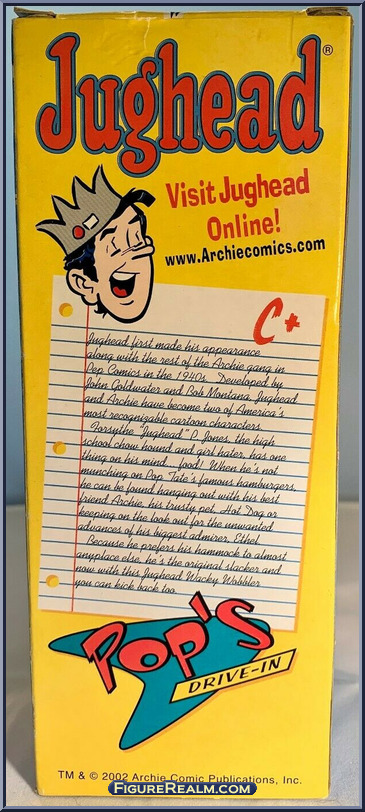 Jughead®
Visit Jughead
Online!
www.Archiecomics.com
C+
Jughead first made his appearance
along with the rest of the Archie gang in
Pep Comics in the 1940s. Developed by
John Goldwater and Bob Montana, Jughead
and Archie have become two of America's
most recognizable cartoon characters.
Forsythe "Jughead" P. Jones, the high
school chow hound and girl hater, has one
thing on his mind...food! When he's not
munching on Pop Tate's famous hamburgers,
he can be found hanging out with his best
friend Archie, his trusty pet, Hot Dog or
keeping on the look out for the unwanted
advances of his biggest admirer, Ethel.
Because he prefers his hammock to almost
anyplace else, he's the original slacker and
now with this Jughead Wacky Wobbler
you can kick back too.
POP'S
DRIVE-IN
TM & © 2002 Archie Comic Publications, Inc.
FIGUREREALM.COM